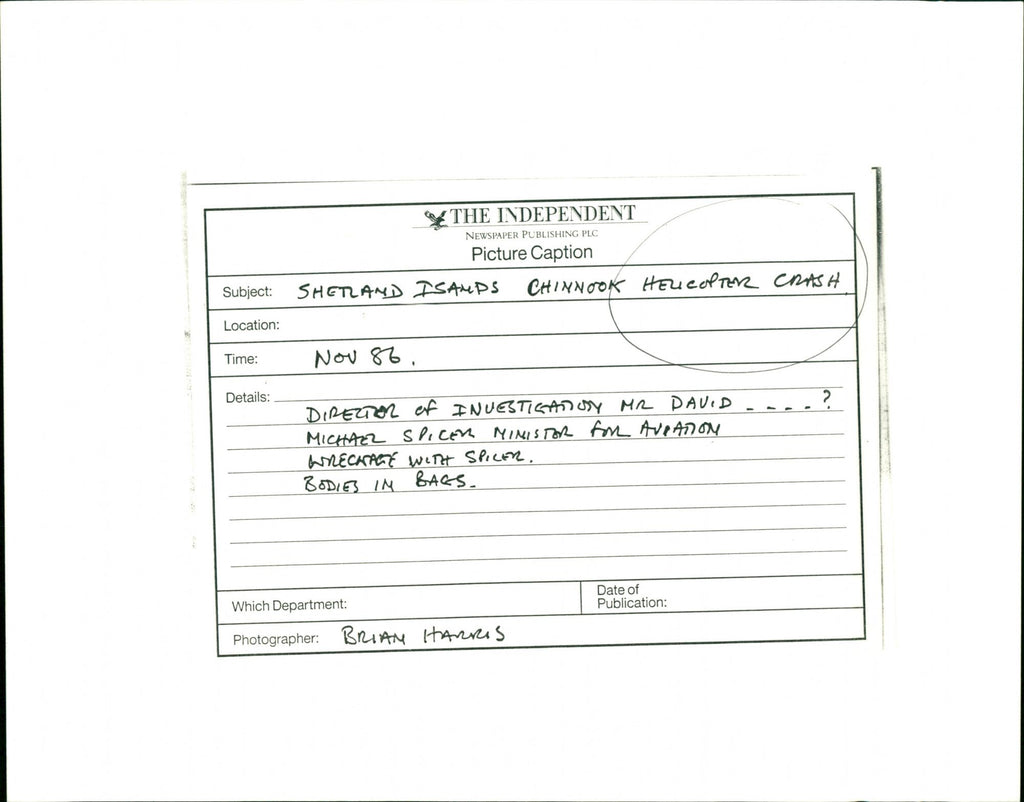 THE INDEPENDENT
NEWSPAPER PUBLISHING PLC
Picture Caption
Subject: SHETLAND ISANDS CHINNOOK HELICOPTER CRASH.
Location:
Time: NOV 86.
Details:
DIRECTOR OF INVESTIGATION MR DAVID ----?
MICHAEL SPICER MINISTOR FOR AVIATION
WRECKAGE WITH SPICER.
BODIES IN BAGS.
Which Department:
Date of
Publication:
Photographer: BRIAN HARRIS